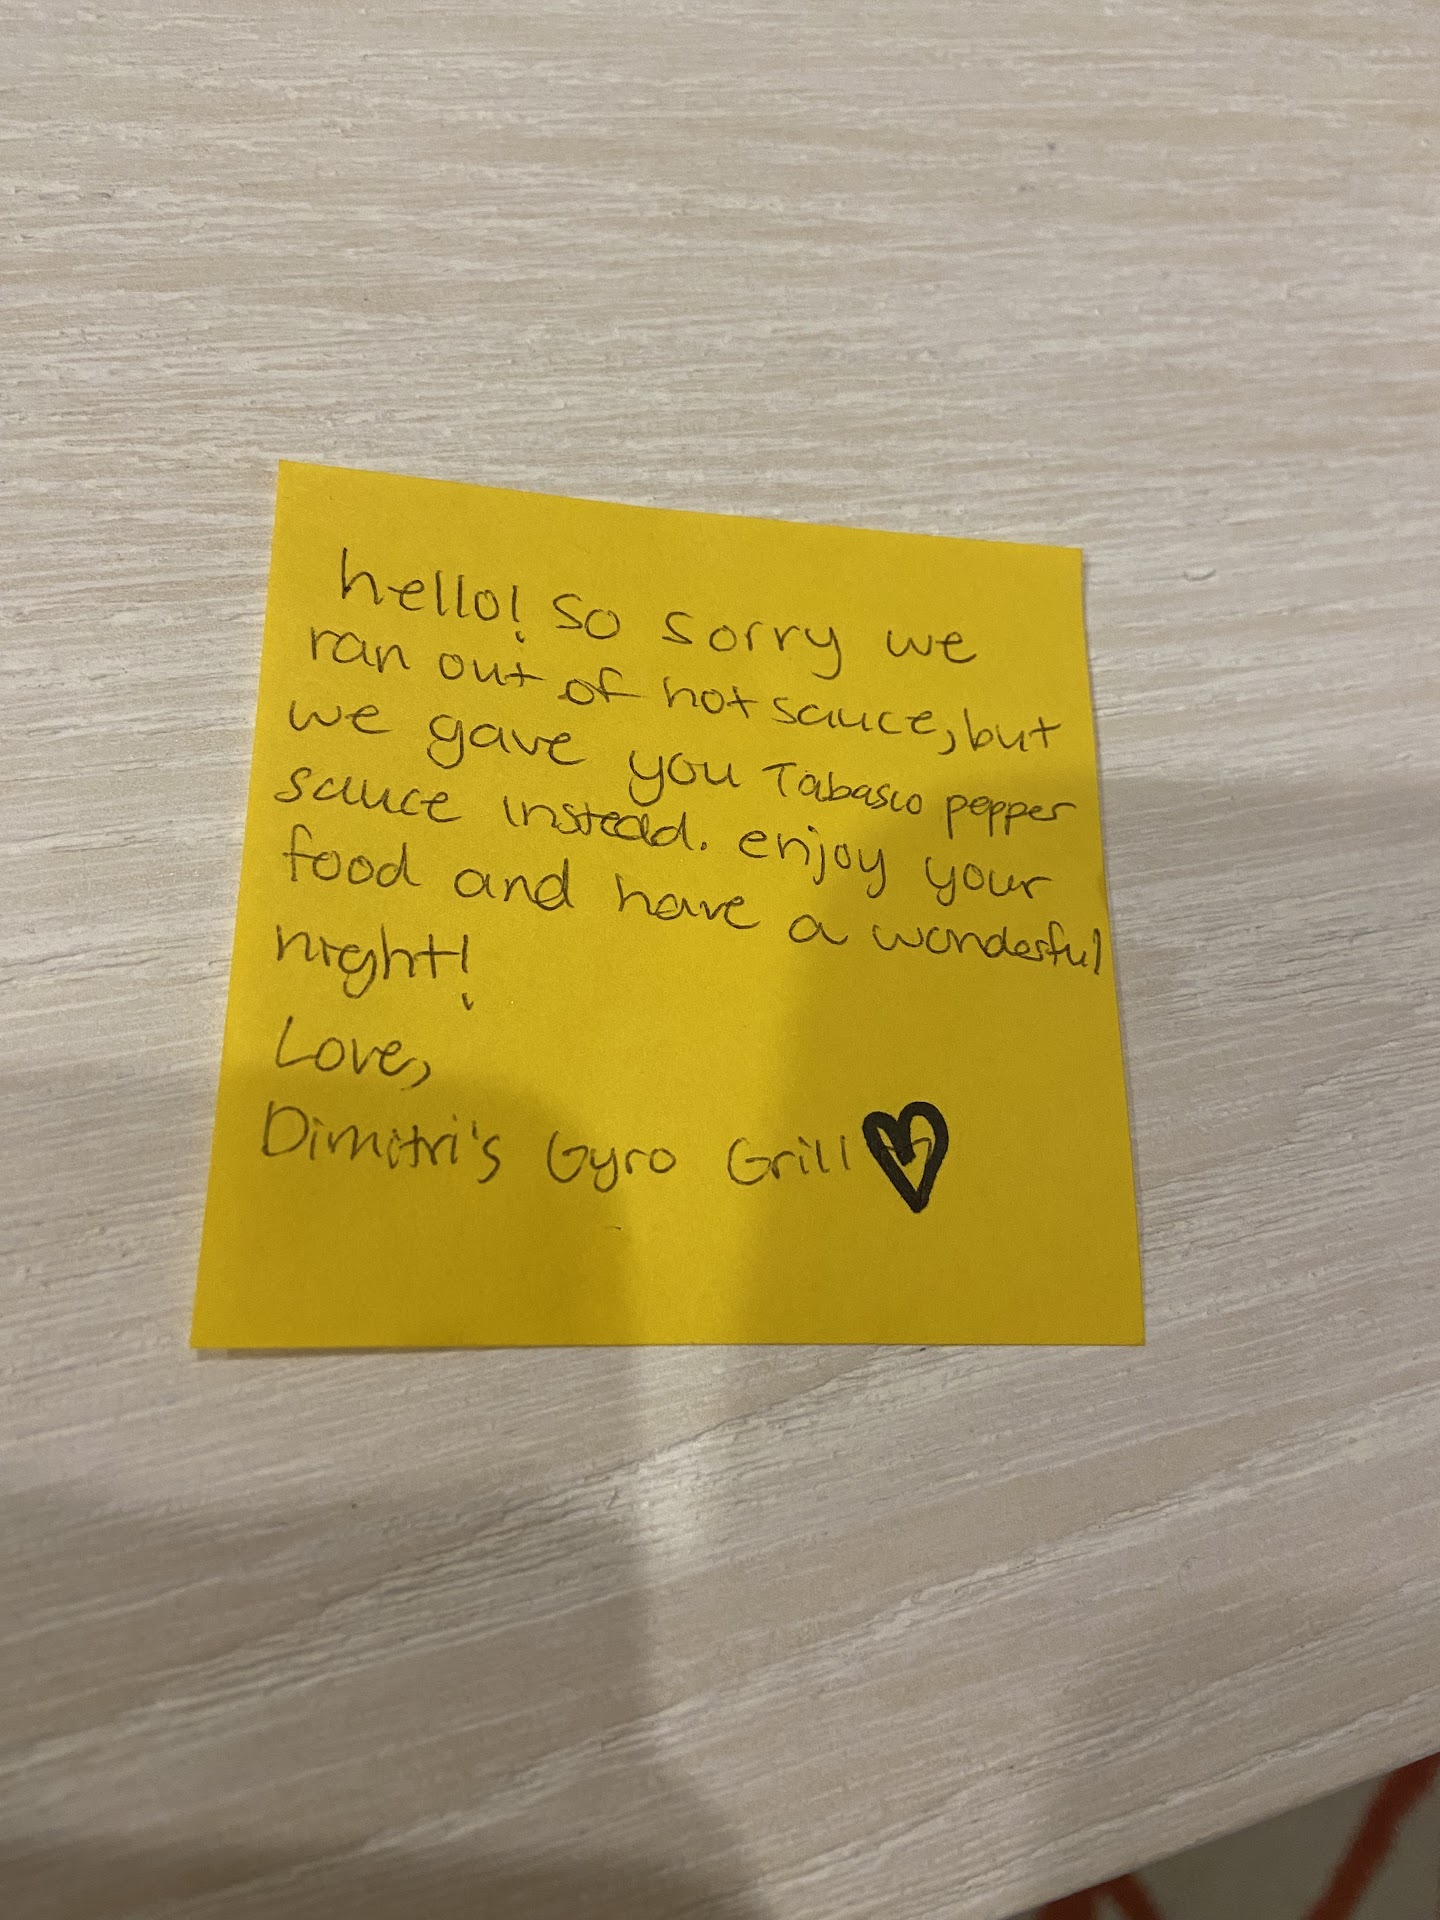 hello! so sorry we
ran out of hot sauce, but
we gave you Tabasco pepper
sauce instead. enjoy your
food and have a wonderful
night!
Love,
Dimitri's Gyro Grill